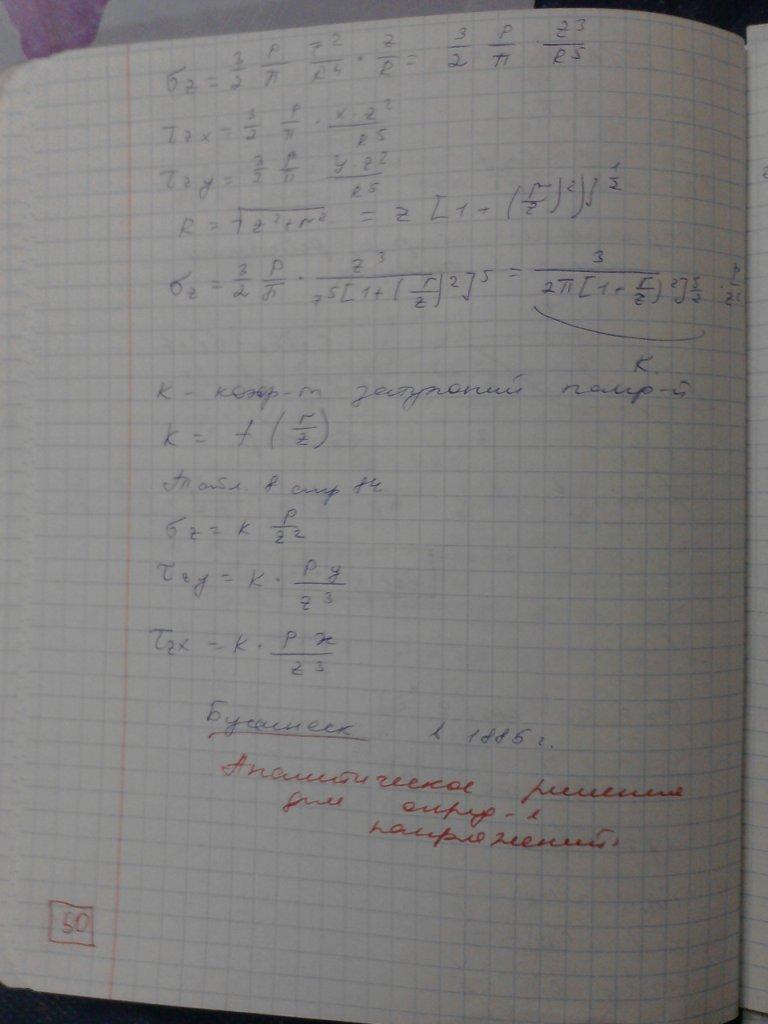 σz = 3/2 P/π z²/R⁴ · z/R = 3/2 P/π · z³/R⁵
τzx = 3/2 P/π · x·z²/R⁵
τzy = 3/2 P/π y z²/R⁵
R = √z²+r² = z [1 + (r/z)²]^1/2
σz = 3/2 P/π · z³/z⁵[1+(r/z)²]⁵ = 3/2π[1+(r/z)²]^5/2 · P/z²
K.
K - коэф-т затуханий напр-й
K = f (r/z)
Табл. 8 стр 84
σz = K P/z²
τzy = K · P y/z³
τzx = K · P x/z³
Бусинеск в 1885 г.
Аналитическое решения
для опред-я
напряжений.
50